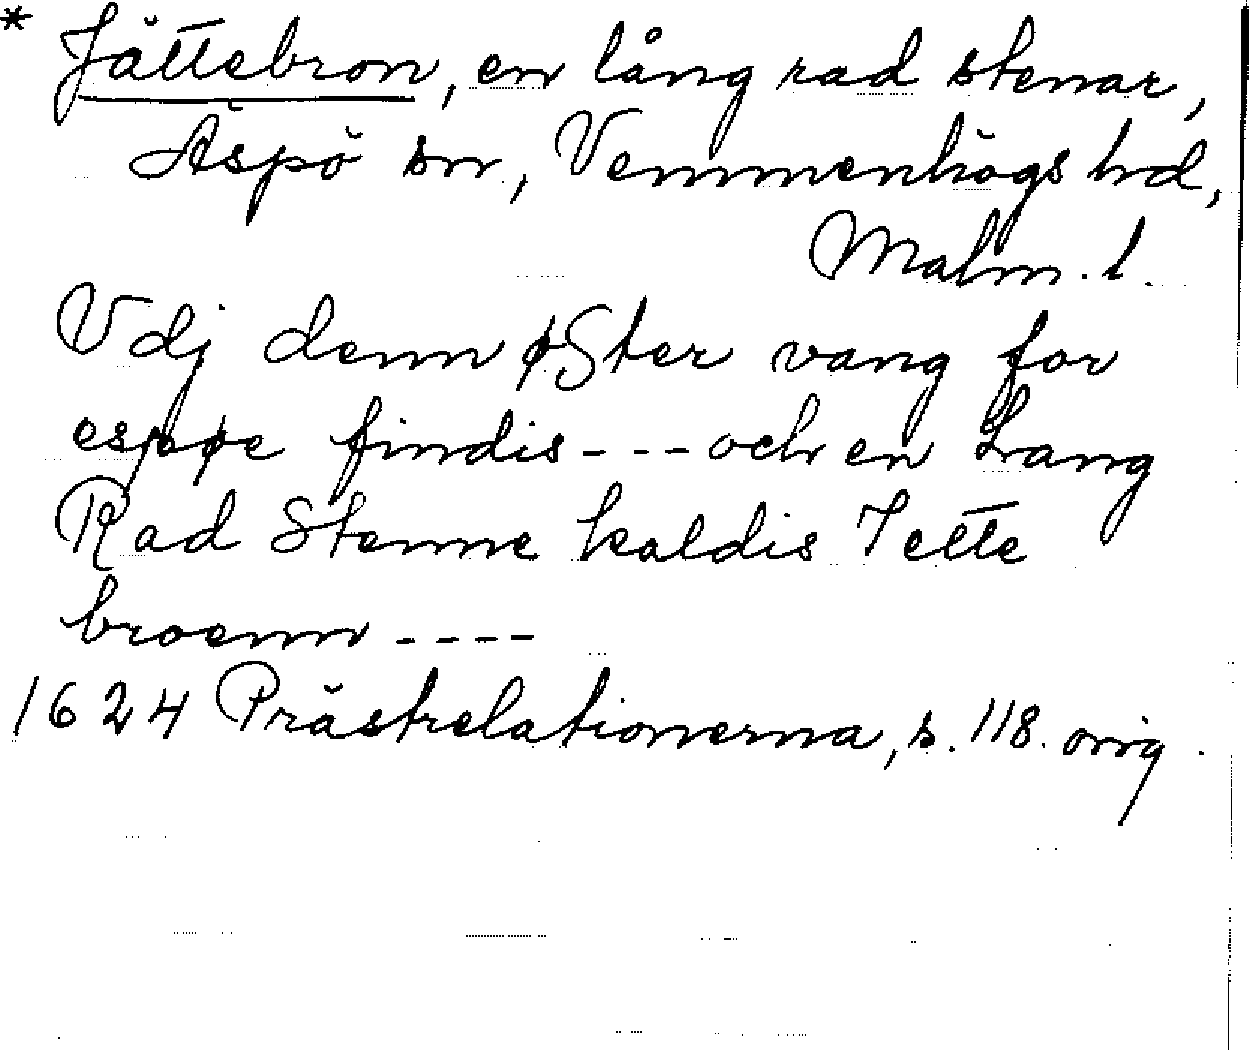 * Jättebron, en lång rad stenar,
Äspö sn, Vemmenhögs hd,
Malm. l.
Vdj denn øSter vang for
espøe findis - - - och en Lang
Rad Stenne kaldis Iette
broenn - - - -
1624 Prästrelationerna, s. 118. orig.